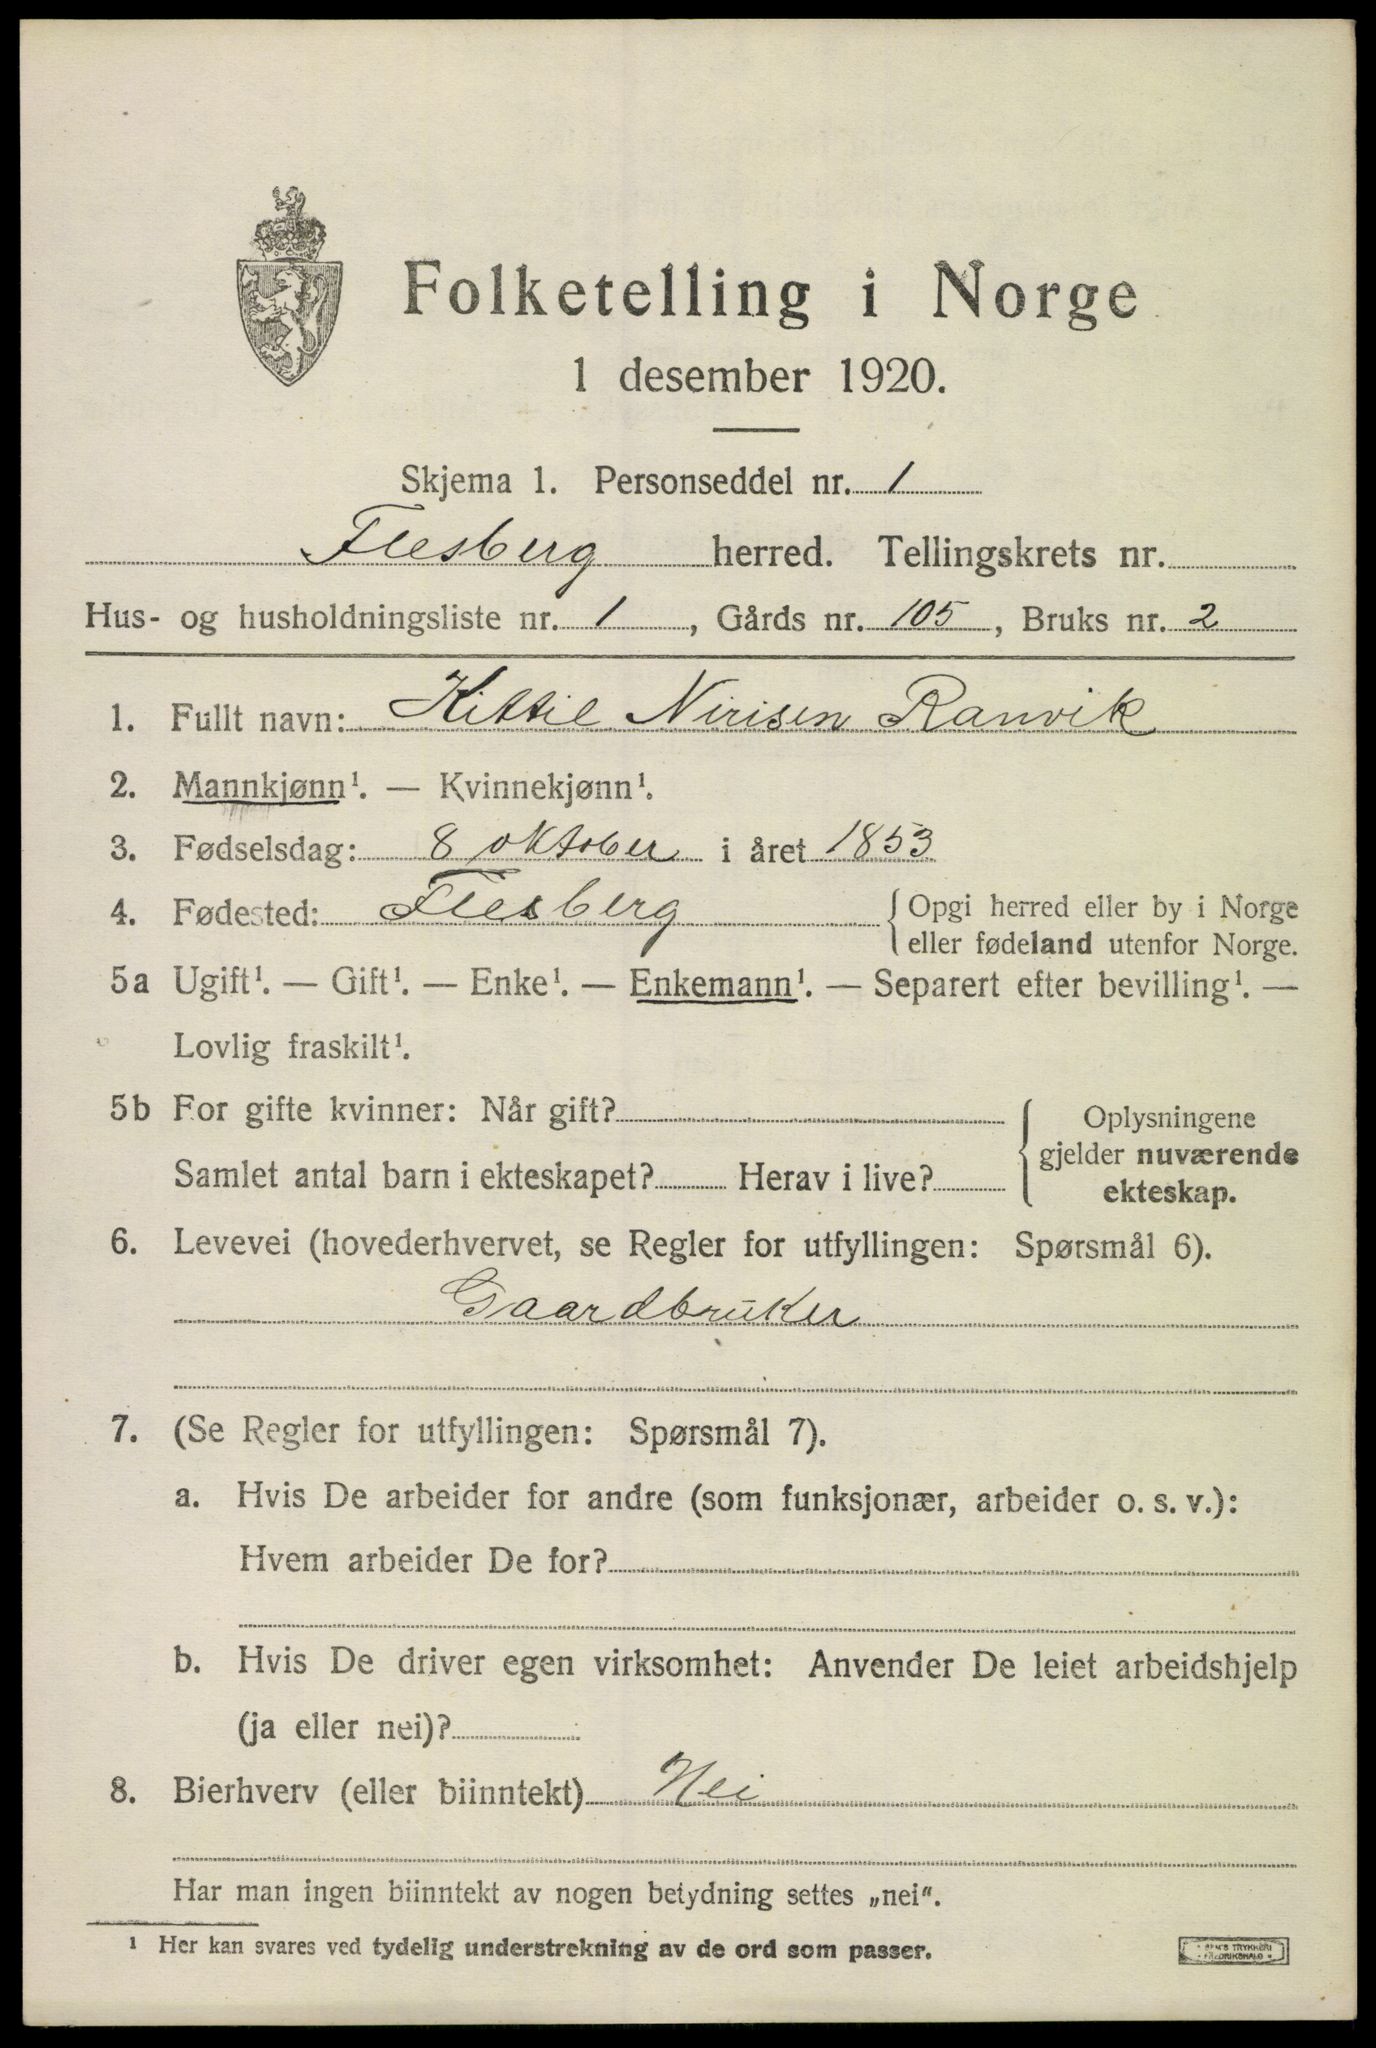 Folketelling i Norge
1 desember 1920.
Skjema 1. Personseddel nr. 1
Flesberg herred. Tellingskrets nr.
Hus- og husholdningsliste nr. 1, Gårds nr. 105, Bruks nr. 2
1. Fullt navn: Kittil Nirisen Ranvik
2. Mannkjønn¹. — Kvinnekjønn¹.
3. Fødselsdag: 8 oktober i året 1853
4. Fødested: Flesberg {Opgi herred eller by i Norge
eller fødeland utenfor Norge.
5a Ugift¹. — Gift¹. — Enke¹. — Enkemann¹. — Separert efter bevilling¹. —
Lovlig fraskilt¹.
5b For gifte kvinner: Når gift?
Samlet antal barn i ekteskapet? Herav i live?
Oplysningene
gjelder nuværende
ekteskap.
6. Levevei (hovederhvervet, se Regler for utfyllingen: Spørsmål 6).
Gaardbruker
7. (Se Regler for utfyllingen: Spørsmål 7).
a. Hvis De arbeider for andre (som funksjonær, arbeider o. s. v.):
Hvem arbeider De for?
b. Hvis De driver egen virksomhet: Anvender De leiet arbeidshjelp
(ja eller nei)?
8. Bierhverv (eller biinntekt) Nei
Har man ingen biinntekt av nogen betydning settes „nei“.
¹ Her kan svares ved tydelig understrekning av de ord som passer.
TRYKKERI
FREDRIKSHALD